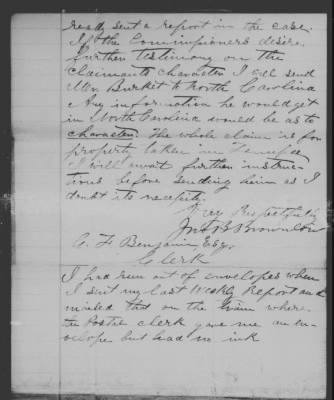 ready sent a report in the case.
If the Commissioners desire
further testimony on the
claimants character I will send
Mr Burket to North Carolina
Any information he would get
in North Carolina would be as to
character. The whole claim is for
property taken in Tennessee
I will await further instruc-
tions before sending him as I
doubt its necessity.
Very Respectfully
Jno B Brownlow
A. F. Benjamin Esq.
Clerk
I had run out of envelopes when
I sent my last Weekly Report and
mailed that on the train where
the Postal Clerk gave me an en-
velope but had no ink